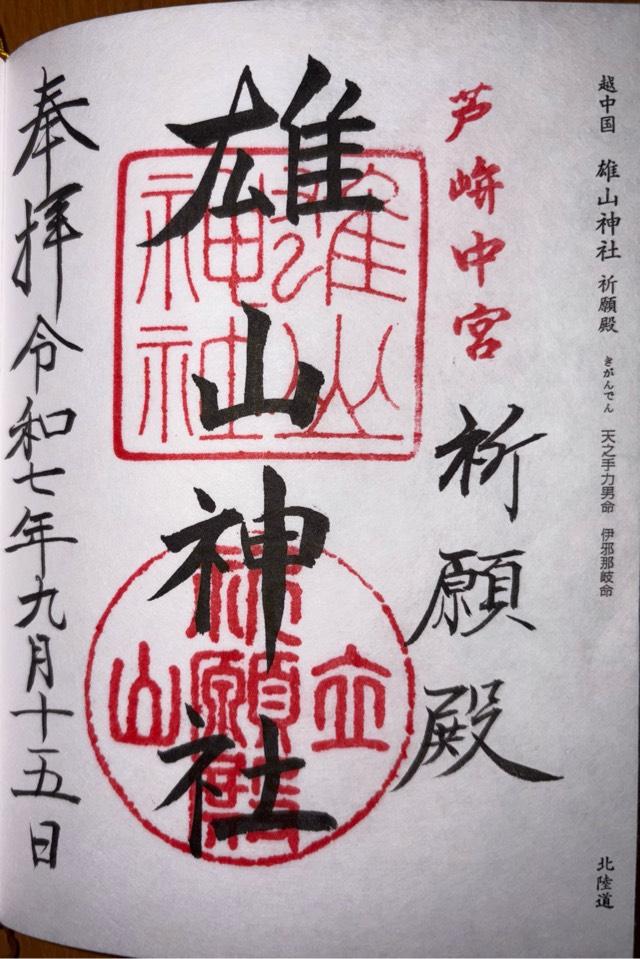 越中国 雄山神社 祈願殿 きがんでん 天之手力男命 伊邪那岐命
北陸道
芦峅中宮
祈願殿
雄山神社
雄山神社
立山
祈願殿
奉拝 令和七年九月十五日